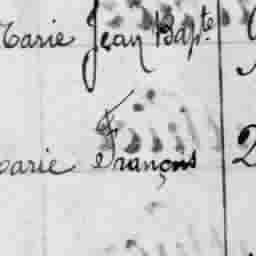 Marie Jean Bapte
Marie François 2